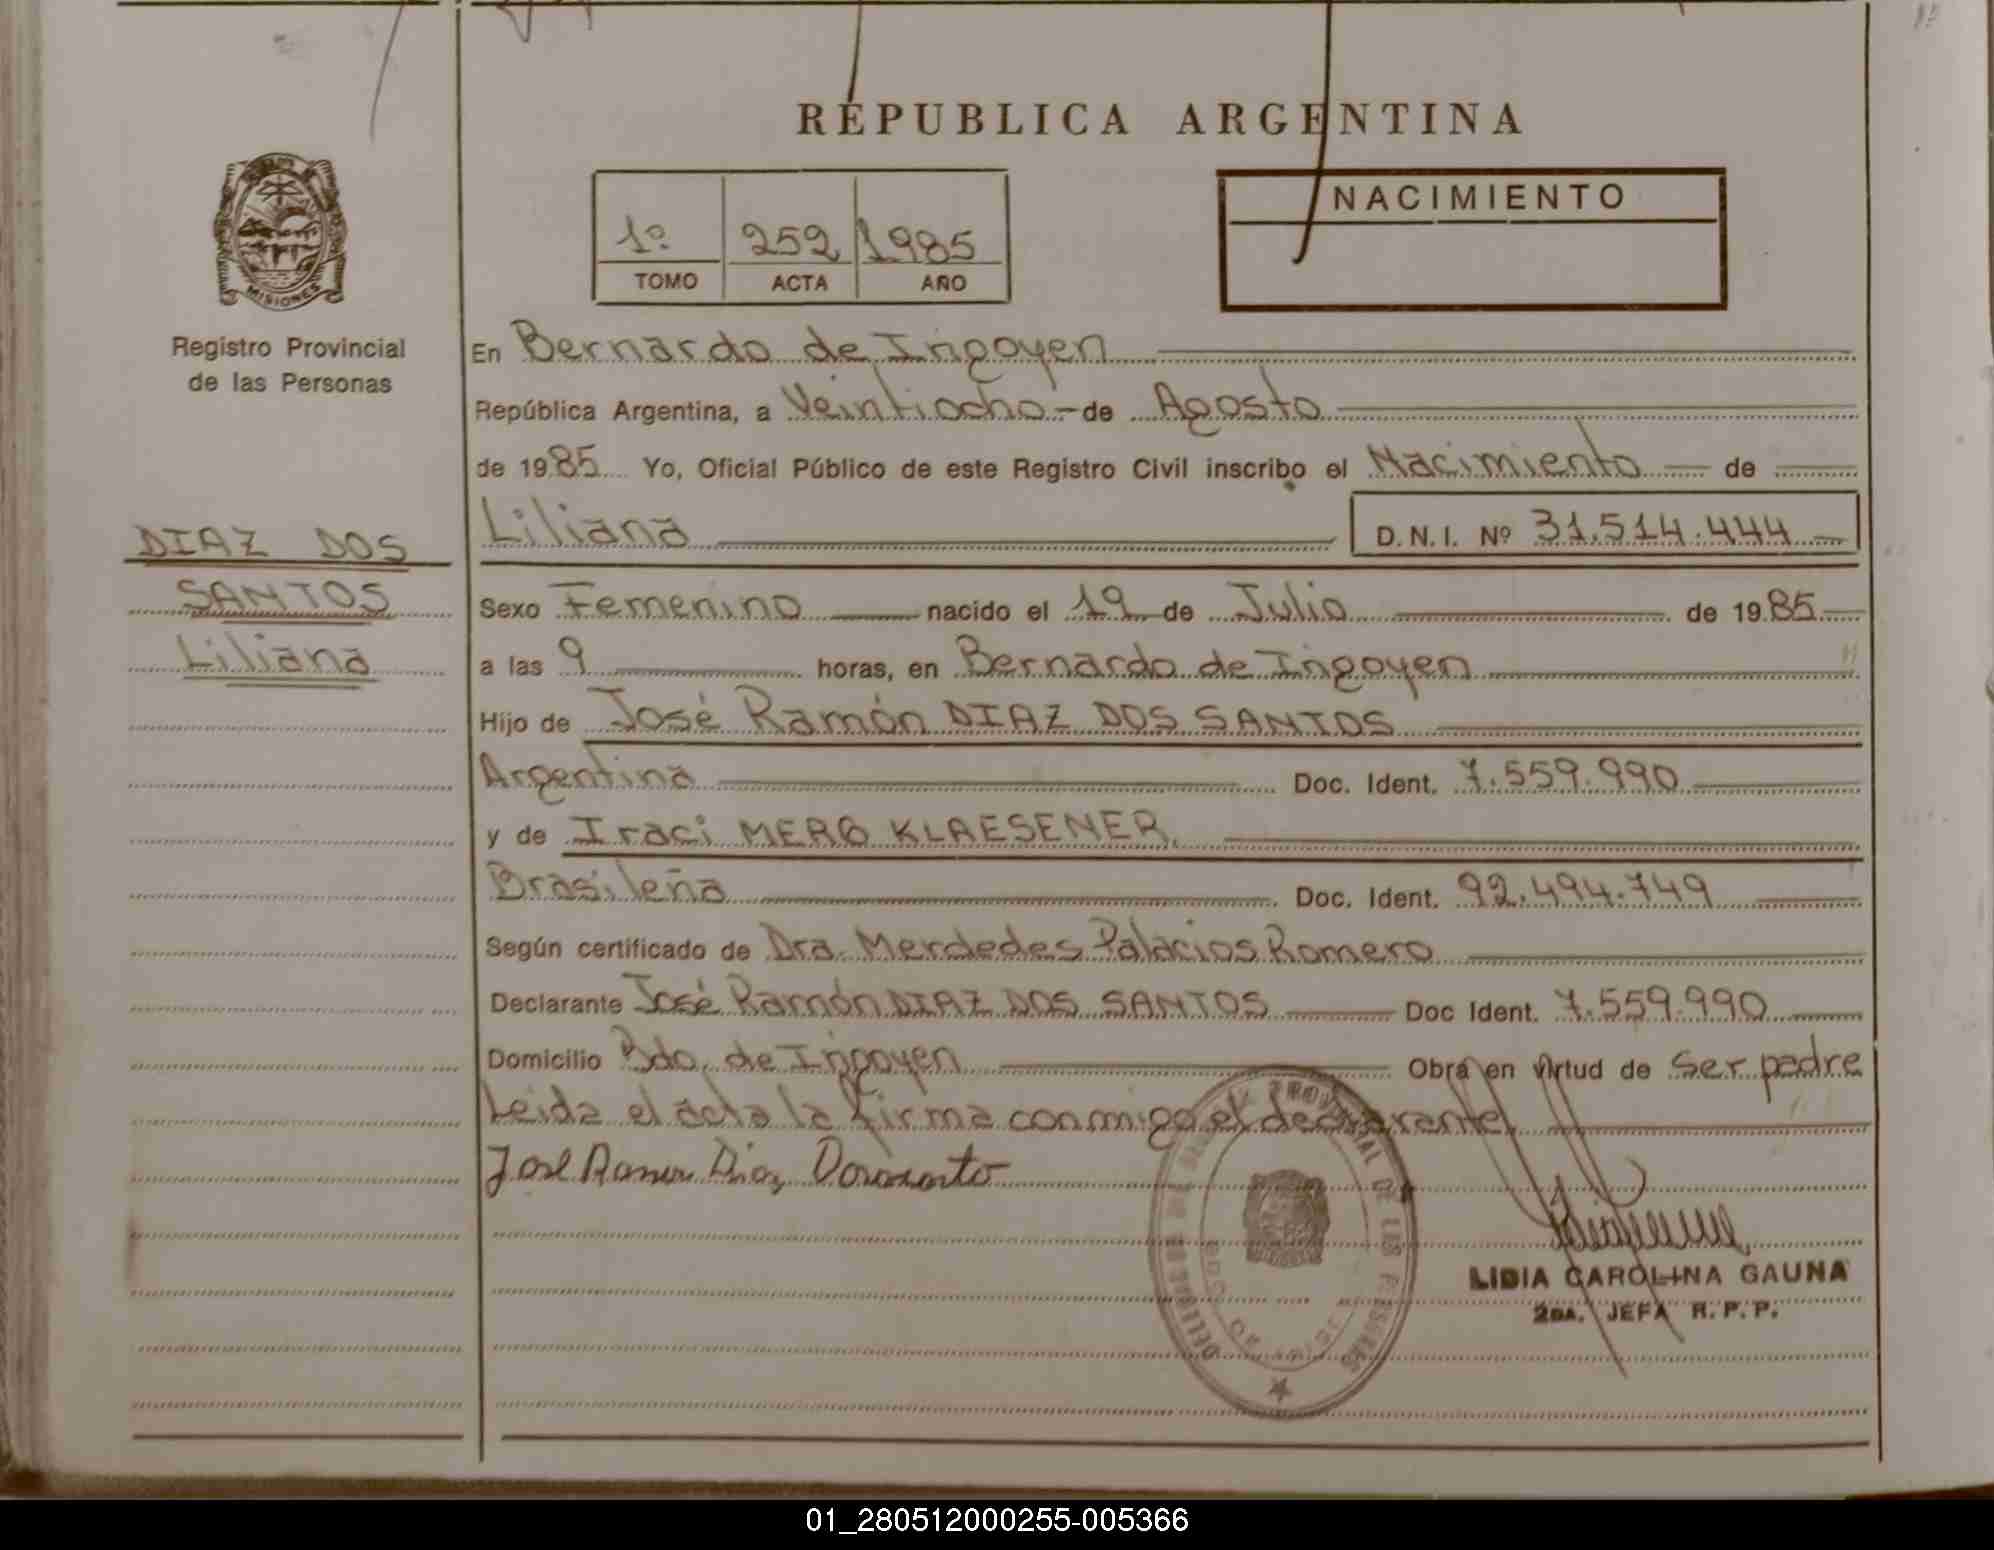 REPUBLICA ARGENTINA
MISIONES
Registro Provincial
de las Personas
1º 252 1985
TOMO ACTA AÑO
NACIMIENTO
DIAZ DOS
SANTOS
Liliana
En Bernardo de Irigoyen
República Argentina, a Veintiocho de Agosto
de 1985 Yo, Oficial Público de este Registro Civil inscribo el Nacimiento de
Liliana D.N.I. Nº 31.514.444
Sexo Femenino nacido el 19 de Julio de 1985
a las 9 horas, en Bernardo de Irigoyen
Hijo de José Ramón DIAZ DOS SANTOS
Argentina Doc. Ident. 7.559.990
y de Iraci MERG KLAESENER.
Brasileña Doc. Ident. 92.494.749
Según certificado de Dra. Merdedes Palacios Romero
Declarante José Ramón DIAZ DOS SANTOS Doc Ident. 7.559.990
Domicilio Bdo. de Irigoyen Obra en virtud de ser padre
Leida el acta la firma conmigo el declarante
José Ramon Diaz
PROVINCIAL DE LAS PERSONAS
LIDIA CAROLINA GAUNA
2DA. JEFA R.P.P.
01_280512000255-005366